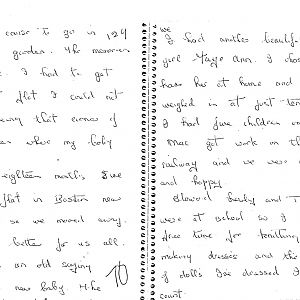 course to go in 124
garden. The moment
I had to get
flat I could not
that
when my baby
eighteen months & we
flat in Boston new
so we moved away
better for us all.
an old saying
new baby. The
70
we
I had another beautiful
girl Mary Ann. I
have her at home and
weighed in at just ten
I had five children
Mac got work on the
railway and we were
and happy
Edward and
were at school so I
free time for knitting
making dresses and the
of dolls I've dressed I
count.